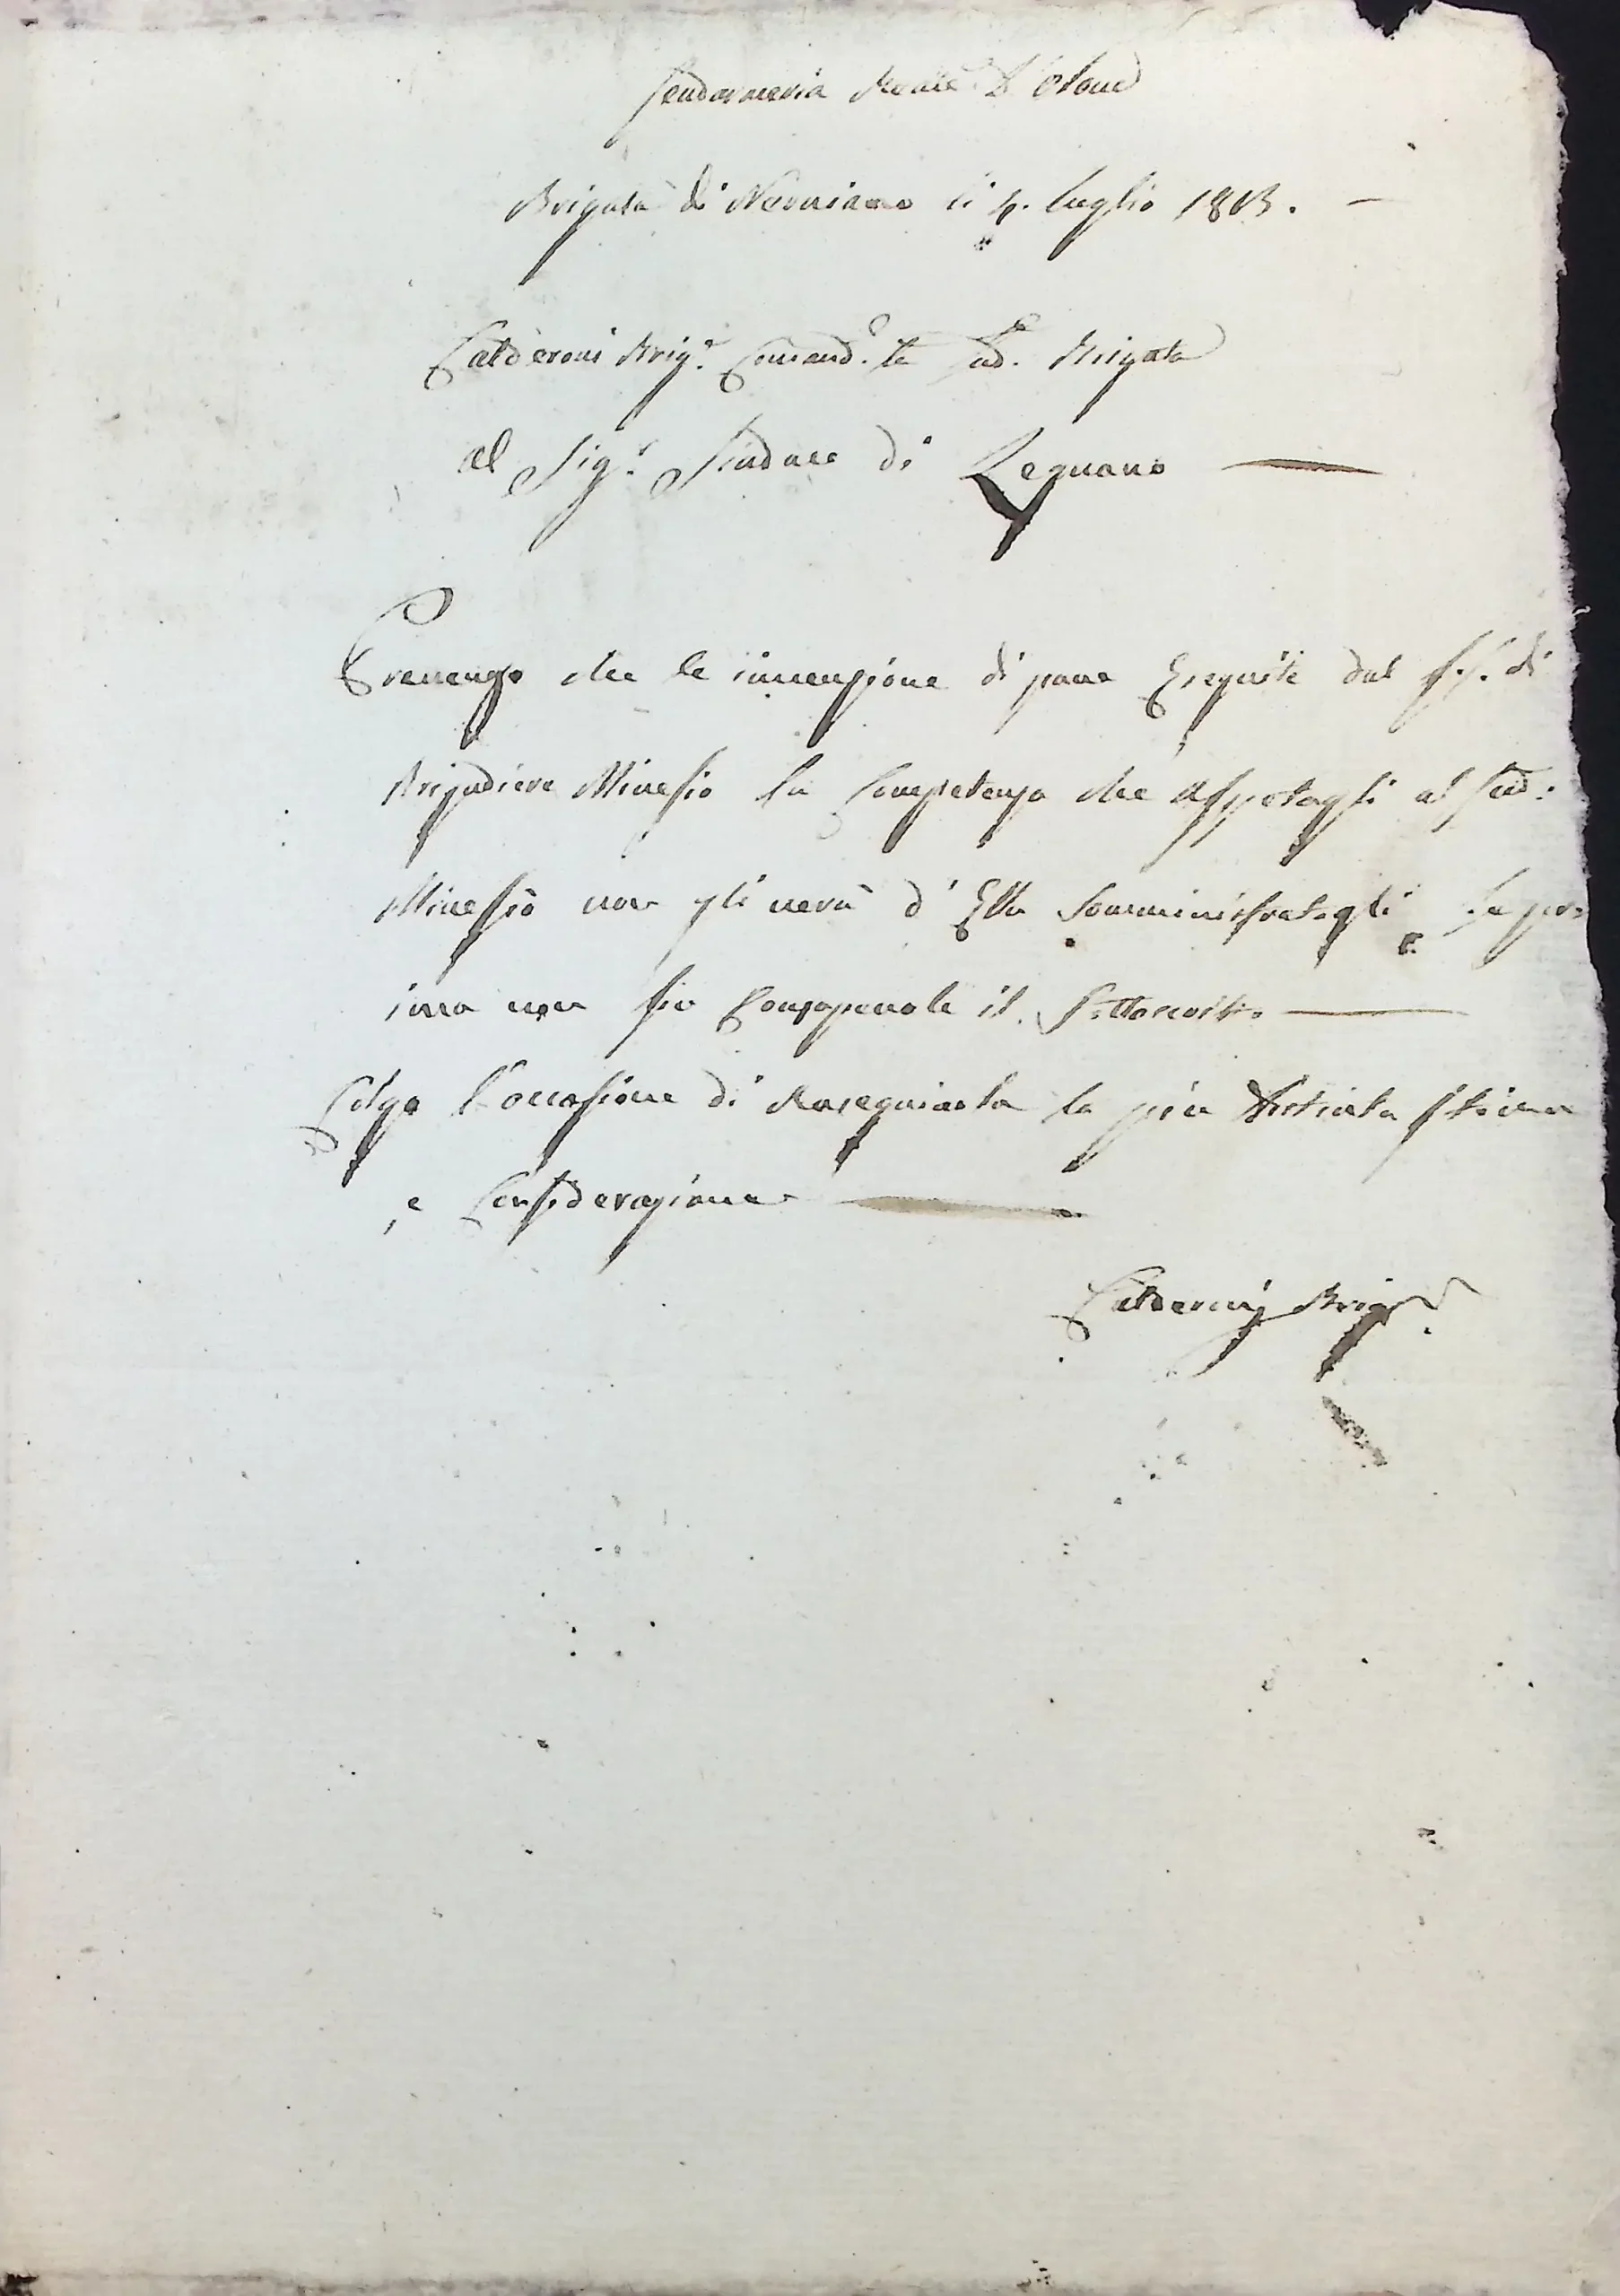 Gendarmeria Reale D'Olona
Brigata di Nerviano li 4. luglio 1813.
Calderoni Brig.e Comand.te la sud.a Brigata
al Sig.r Sindaco di Legnano
Prevengo che le di pane Eseguite dal f.f. di
Brigadiere Minesso la Competenza che aspetagli al sud:
Minesso non gli verà d'Ella Somministratogli Se pri=
ima non sia Consapevole il Sottoscritto
Colgo l'occasione di Rasegniarla la più distinta stima
e Considerazione
Calderonj Brig.e